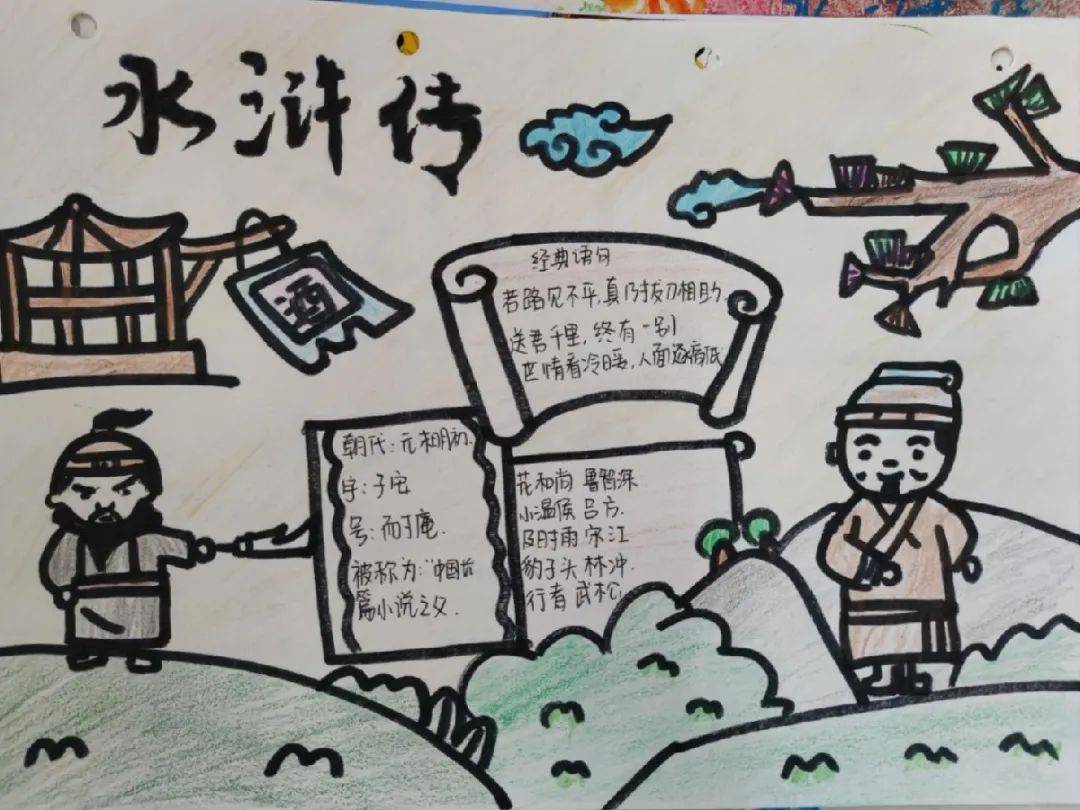 水浒传
酒
经典语句
若路见不平,真乃拔刀相助.
送君千里,终有一别
世情看冷暖,人面逐高低
朝代:元相朋初.
字:子安
号:而于庵.
被称为:"中国长
篇小说之父.
花和尚 鲁智深
小温侯 吕方.
及时雨 宋江
豹子头 林冲.
行者 武松.